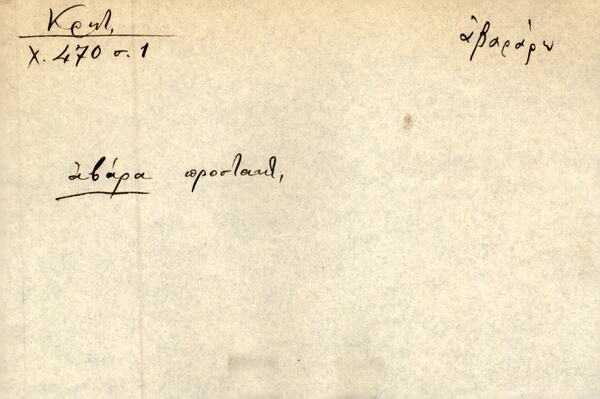 Κρητ,
Χ. 470 σ. 1
ἀβαράρω
ἀβάρα προστακτ,